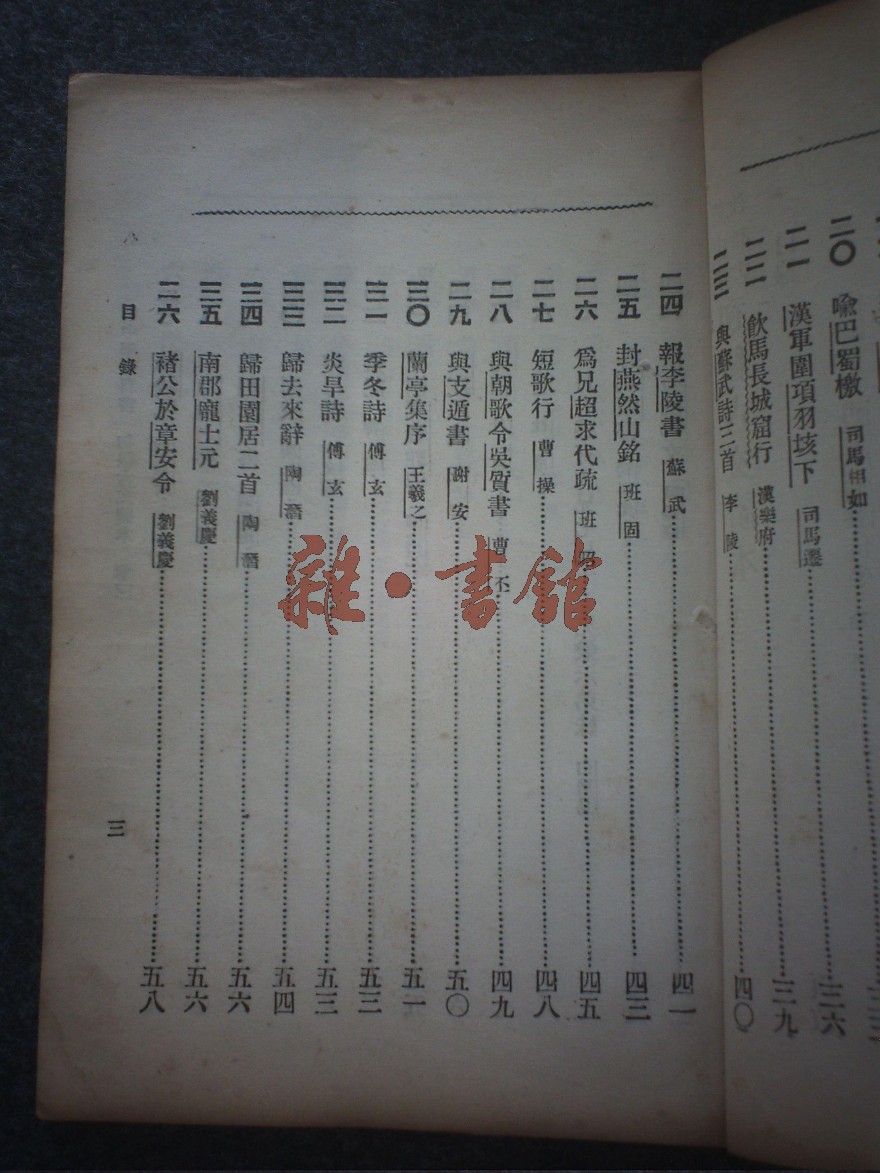 二〇 喩巴蜀檄 司馬相如 三六
二一 漢軍圍項羽垓下 司馬遷 三九
二二 飲馬長城窟行 漢樂府
二三 與蘇武詩三首 李陵 四〇
二四 報李陵書 蘇武 四二
二五 封燕然山銘 班固 四三
二六 爲兄超求代疏 班 四五
二七 短歌行 曹操 四八
二八 與朝歌令吳質書 曹丕 四九
二九 與支遁書 謝安 五〇
三〇 蘭亭集序 王羲之 五一
三一 季冬詩 傅玄 五三
三二 炎旱詩 傅玄 五三
三三 歸去來辭 陶潛 五四
三四 歸田園居二首 陶潛 五六
三五 南郡龐士元 劉義慶 五六
三六 褚公於章安令 劉義慶 五八
目錄
三
雜·書館